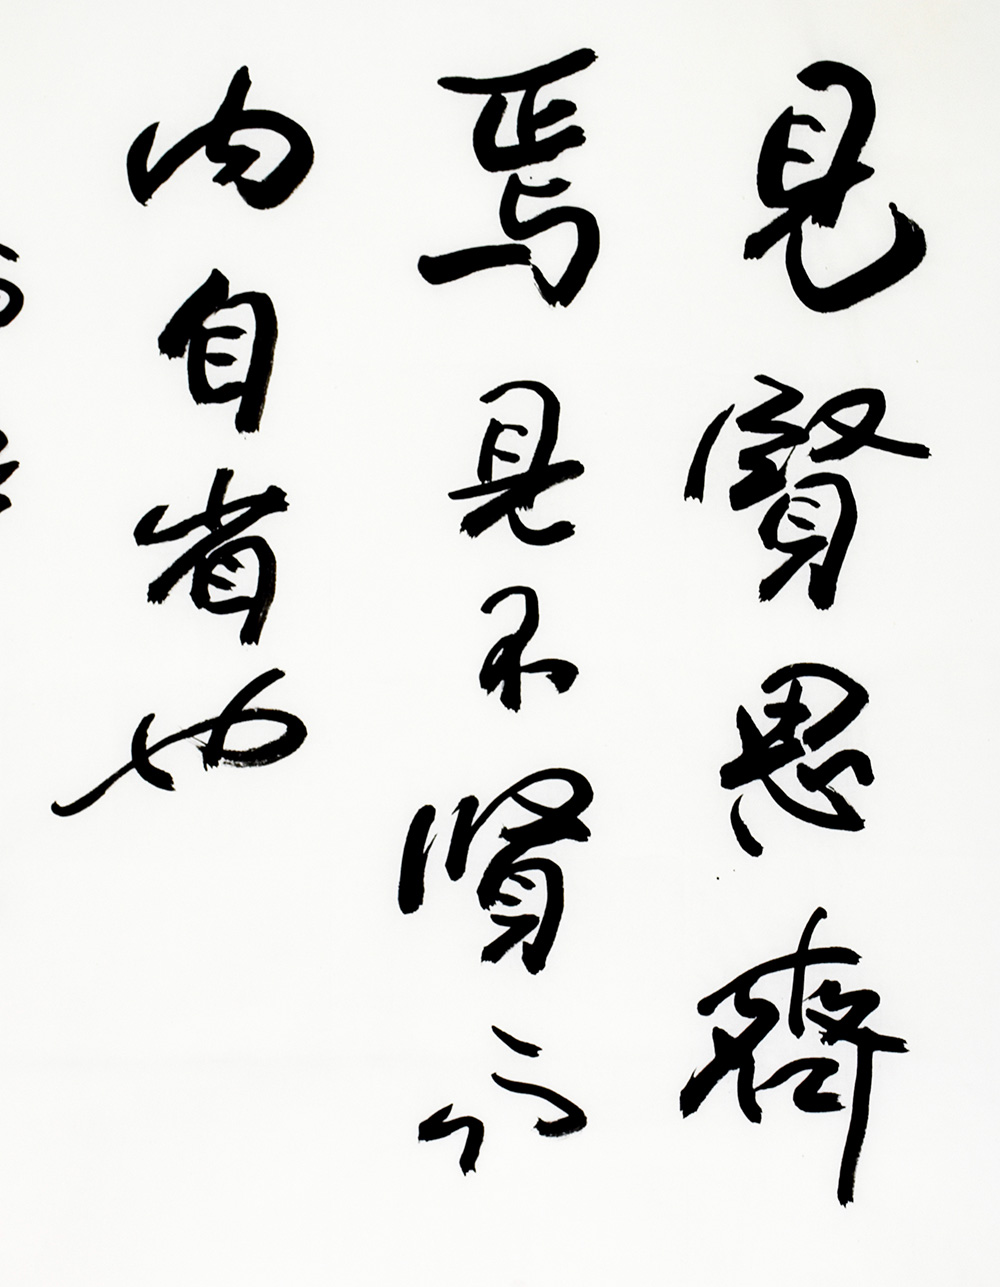 見賢思齊
焉見不賢而
内自省也